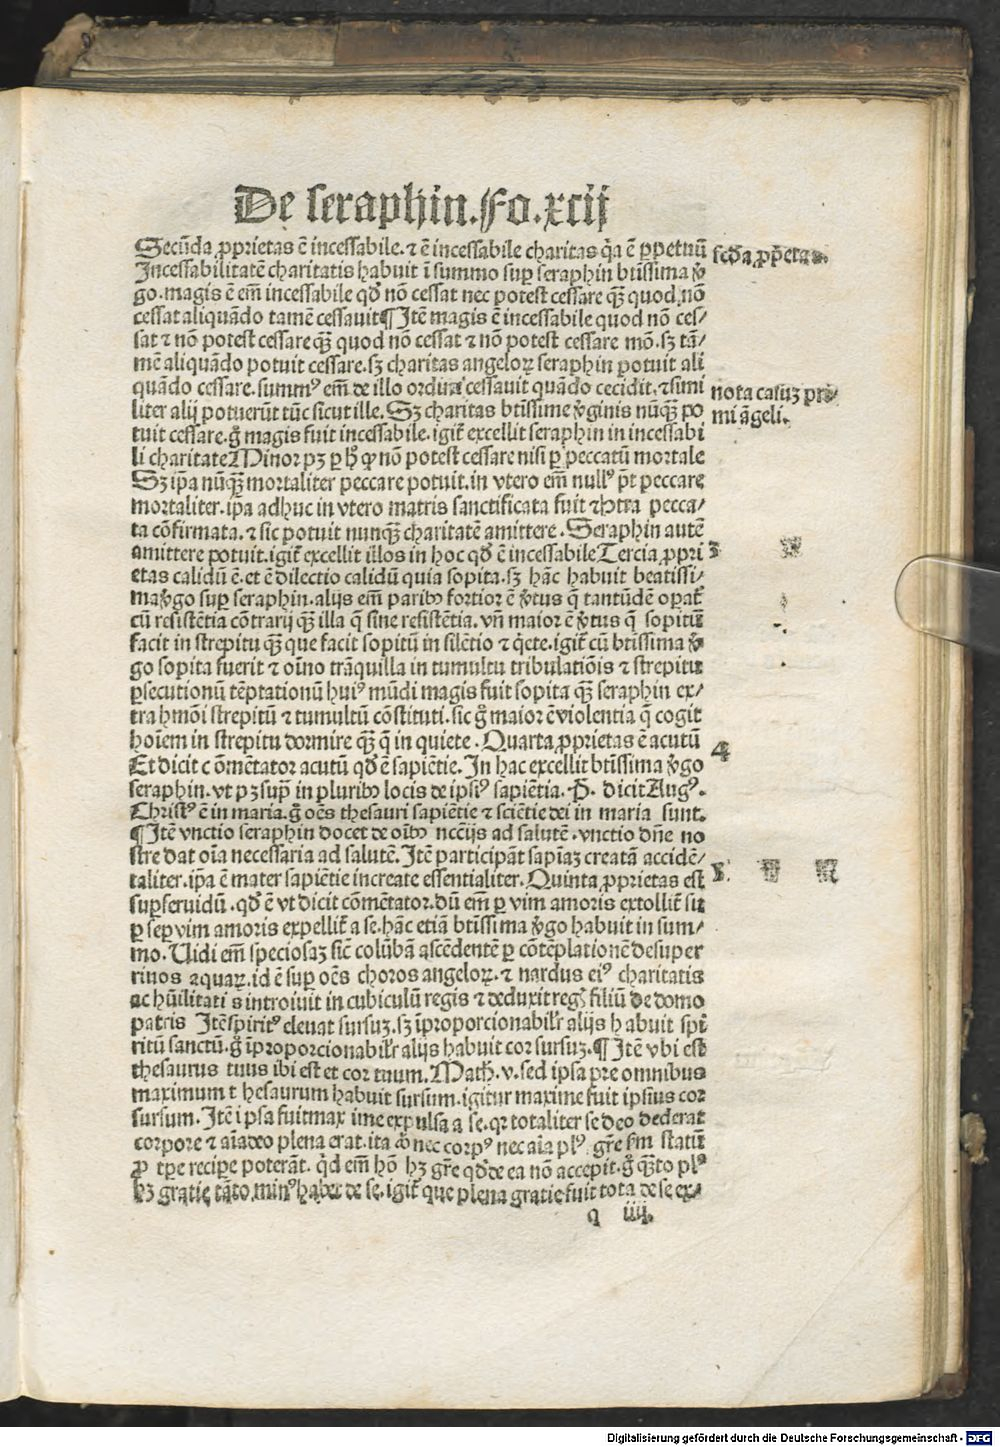 De seraphin. Fo. xcij
Secūda ꝓprietas ē incessabile. ⁊ ē incessabile charitas q̄a ē ꝑpetuū
scd̄a ꝓpetas.
Incessabilitatē charitatis habuit ī summo suꝑ seraphin btissima v̄
go. magis ē em̄ incessabile qd̄ nō cessat nec potest cessare qꝫ̄ quod nō
cessat aliquādo tamē cessauit ¶ Itē magis ē incessabile quod nō ces⸗
sat ⁊ nō potest cessare qꝫ̄ quod nō cessat ⁊ nō potest cessare mō. sꝫ tā⸗
mē aliquādo potuit cessare. sꝫ charitas angeloꝝ seraphin potuit ali
quādo cessare. summꝰ em̄ de illo ordine cessauit quādo cecidit. ⁊ simi
nota casuꝫ pri⸗
mi āgeli.
liter alij potuerūt tūc sicut ille. Sꝫ charitas btissime v̄ginis nūqꝫ̄ po
tuit cessare. g̊ magis fuit incessabile. igit̄ excellit seraphin in incessabi
li charitate Minor pꝫ ꝑ hꝰ ꝙ nō potest cessare nisi ꝑ peccatū mortale
Sꝫ ip̄a nūqꝫ̄ mortaliter peccare potuit. in vtero em̄ nullꝰ pt̄ peccare
mortaliter. ip̄a adhuc in vtero matris sanctificata fuit ⁊ ꝯtra pecca⸗
ta cōfirmata. ⁊ sic potuit nunqꝫ̄ charitatē amittere. Seraphin autē
amittere potuit. igit̄ excellit illos in hoc qd̄ ē incessabile Tercia ꝓpri
3
etas calidū ē. et ē dilectio calidū quia sopita. sꝫ hāc habuit beatissi⸗
ma v̄go suꝑ seraphin. alijs em̄ paribꝰ fortior ē v̄tus q̄ tantūdē oꝑat̄
cū resistētia cōtrarij qꝫ̄ illa q̄ sine resistētia. vn̄ maior ē v̄tus q̄ sopitū
facit in strepitu qꝫ̄ que facit sopitū in silētio ⁊ q̇ete. igit̄ cū btissima v̄
go sopita fuerit ⁊ oīno trāquilla in tumultu tribulatiōis ⁊ strepitu
ꝑsecutionū tēptationū huiꝰ mūdi magis fuit sopita qꝫ̄ seraphin ex⸗
tra hmōi strepitū ⁊ tumultū cōstituti. sic g̊ maior ē violentia q̄ cogit
hoīem in strepitu dormire qꝫ̄ q̄ in quiete. Quarta ꝓprietas ē acutū
4
Et dicit c ōmētator acutū qd̄ ē sapiētie. In hac excellit btissima v̄go
seraphin. vt pꝫ supͣ in pluribꝰ locis de ipsiꝰ sapiētia. P. dicit Augꝰ.
Christꝰ ē in maria. g̊ oēs thesauri sapiētie ⁊ sciētie dei in maria sunt.
¶ Itē vnctio seraphin docet de oībꝰ nccīs ad salutē. vnctio dn̄e no
stre dat oīa necessaria ad salutē. Itē participāt sap̄iaꝫ creatā accidē⸗
taliter. ip̄a ē mater sapiētie increate essentialiter. Quinta ꝓprietas est
5.
suꝑferuidū. qd̄ ē vt dicit cōmētator. dū em̄ ꝑ vim amoris extollit̄ su
ꝑ se ꝑ vim amoris expellit̄ a se. hāc etiā btissima v̄go habuit in sum⸗
mo. Uidi em̄ speciosaꝫ sic̄ colūbā ascēdentē ꝑ cōtēplationē desuper
riuos aquaꝝ. id ē suꝑ oēs choros angeloꝝ. ⁊ nardus eiꝰ charitatis
ac hūilitati s introiuit in cubiculū regis ⁊ deduxit regꝭ filiū de domo
patris Itē spiritꝰ eleuat sursuꝫ. sꝫ īproporcionabilr̄ alijs h abuit spi
ritū sanctū. g̊ īproporcionabilr̄ alijs habuit cor sursuꝫ. ¶ Itē vbi est
thesaurus tuus ibi est et cor tuum. Math. v. sed ipsa pre omnibus
maximum t hesaurum habuit sursum. igitur maxime fuit ipsius cor
sursum. Itē i psa fuit max ime expulsa a se. qꝛ totaliter se deo dederat
corpore ⁊ aīa deo plena erat. ita ꝙ nec corpꝰ nec aīa plꝰ gr̄e sm̄ statū
ꝓ tp̄e recipe poterāt. qd̄ em̄ hō hꝫ gr̄e qd̄ de ea nō accepit. g̊ qꝫ̄to plꝰ
hꝫ gratie tāto minꝰ habet de se. igit̄ que plena gratie fuit tota de se ex⸗
q iiij.
Digitalisierung gefördert durch die Deutsche Forschungsgemeinschaft - DFG